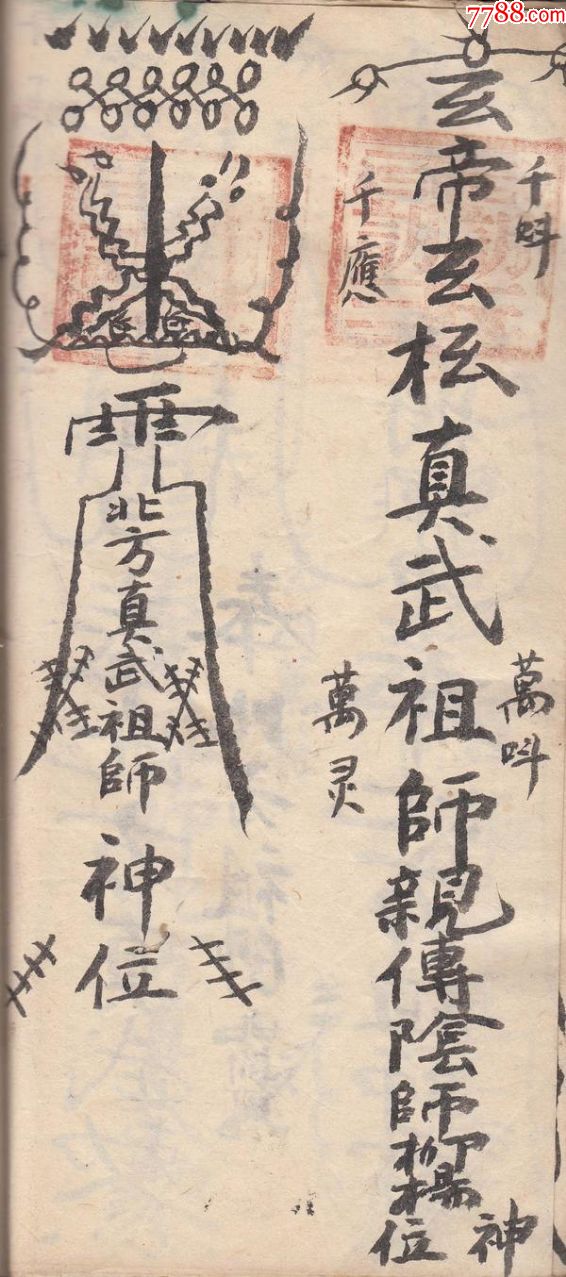 7788.com
玄帝玄枟真武祖師親傳陰師柳楊神位
千叫
千應
萬叫
萬灵
北方真武祖師
神位